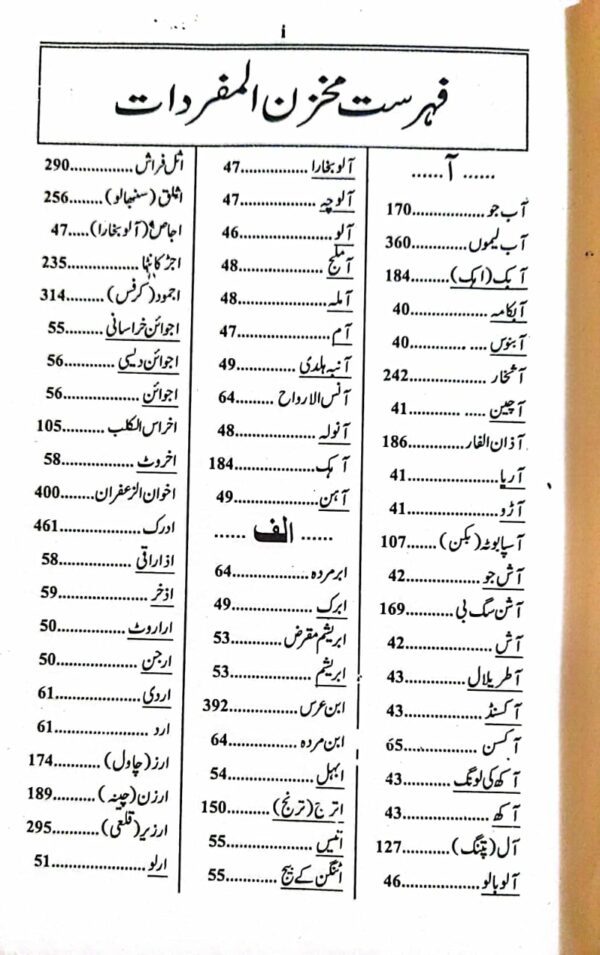 i
فہرست مخزن المفردات
...... آ ......
آب جو..................170
آب لیموں..............360
آبک (اہک).........184
آبکامہ..................40
آبنوس.... ...........40
آشخار...................242
آچین.... ............41
آذان الفار...............186
آریا.....................41
آڑو.....................41
آسپا بوٹہ (بکن).......107
آش جو.................42
آشن سگ بی...........169
آش....................42
آطریلال...............43
آکسنڈ.................43
آکسن..................65
آکھ کی لونگ...........43
آکھ.....................43
آل (پتنگ)...........127
آلو بالو..................46
آلو بخارا................47
آلوچہ...................47
آلو......................46
آملج....................48
آملہ....................48
آم......................47
آنبہ ہلدی..............49
آنس الارواح .........64
آنولہ...................48
آہک..................184
آہن...................49
...... الف ......
ابر مردہ................64
ابرک..................49
ابریشم مقرض..........53
ابریشم..................53
ابن عرس...............392
ابن مردہ ...............64
ابہل...................54
اترج (ترنج)..........150
اتیس..................55
اٹنگن کے بیج...........55
اثل فراش ..............290
اثلق (سنبھالو)........256
اجاص (آلو بخارا).....47
اجڑ کانٹا................235
اجمود (کرفس) .......314
اجوائن خراسانی........55
اجوائن دیسی...........56
اجوائن.................56
اخراس الکلب.........105
اخروٹ................58
اخوان الزعفران........400
ادرک..................461
اذاراقی................58
اذخر...................59
اراروٹ................50
ارجن .................50
اردی..................61
ارد ...................61
ارز (چاول) ...........174
ارزن (چینہ) .........189
ارزیر (قلعی)..........295
ارلو....................51